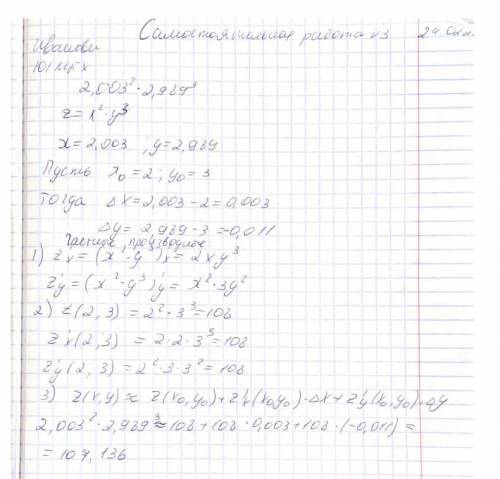 Самостоятельная работа №3 24.02.22.
101 МБХ
2,003² · 2,989³
z = x² · y³
x = 2,003 ; y = 2,989
Пусть x₀ = 2 ; y₀ = 3
Тогда Δx = 2,003 - 2 = 0,003
Δy = 2,989 - 3 = -0,011
частные, производные
1) z'x = (x² · y³)'x = 2xy³
z'y = (x² · y³)'y = x² · 3y²
2) z(2, 3) = 2² · 3³ = 108
z'x(2, 3) = 2 · 2 · 3³ = 108
z'y(2, 3) = 2² · 3 · 3² = 108
3) z(x, y) ≈ z(x₀, y₀) + z'x(x₀ y₀) · Δx + z'y(x₀, y₀) · Δy
2,003² · 2,989³ ≈ 108 + 108 · 0,003 + 108 · (-0,011) =
= 107,136